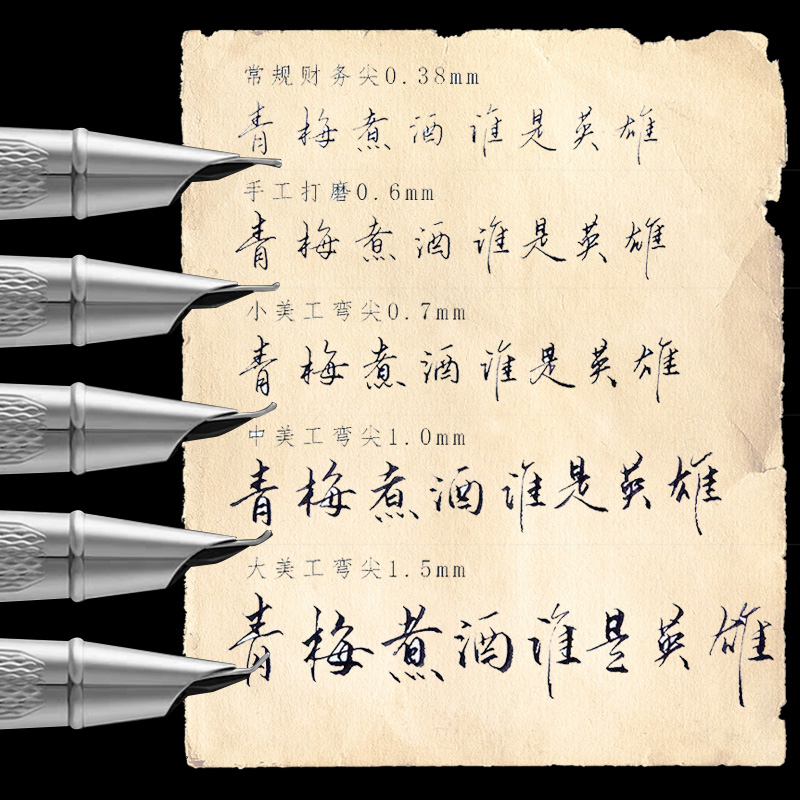 常规财务尖0.38mm
青梅煮酒谁是英雄
手工打磨0.6mm
青梅煮酒谁是英雄
小美工弯尖0.7mm
青梅煮酒谁是英雄
中美工弯尖1.0mm
青梅煮酒谁是英雄
大美工弯尖1.5mm
青梅煮酒谁是英雄